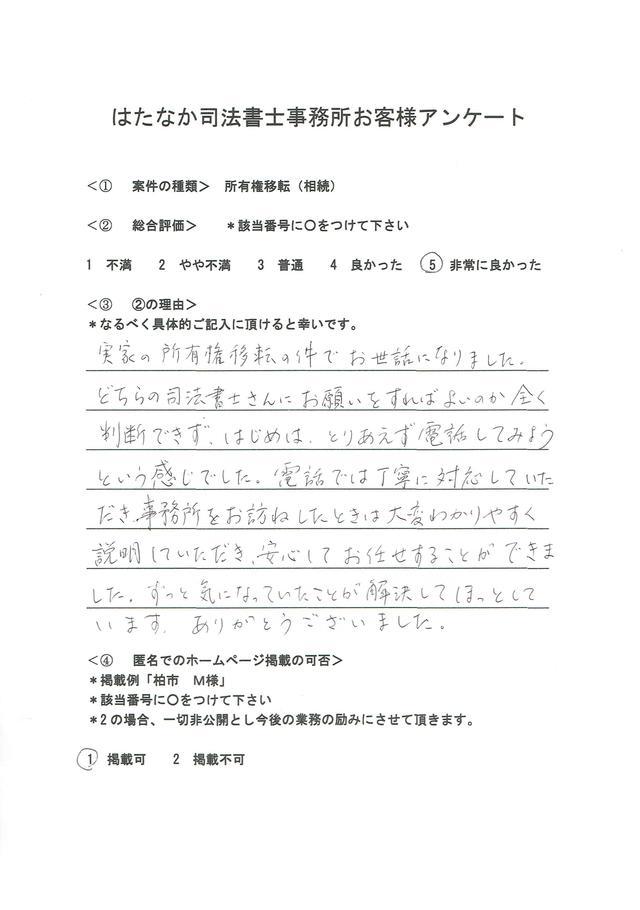 はたなか司法書士事務所お客様アンケート
＜①　案件の種類＞　所有権移転（相続）
＜②　総合評価＞　＊該当番号に〇をつけて下さい
1　不満　2　やや不満　3　普通　4　良かった　5　非常に良かった
＜③　②の理由＞
＊なるべく具体的ご記入に頂けると幸いです。
実家の所有権移転の件でお世話になりました。
どちらの司法書士さんにお願いをすればよいのか全く
判断できず、はじめは、とりあえず電話してみよう
という感じでした。電話では丁寧に対応していた
だき、事務所をお訪ねしたときは大変わかりやすく
説明していただき、安心してお任せすることができま
した。ずっと気になっていたことが解決してほっとして
います。ありがとうございました。
＜④　匿名でのホームページ掲載の可否＞
＊掲載例「柏市　M様」
＊該当番号に〇をつけて下さい
＊2の場合、一切非公開とし今後の業務の励みにさせて頂きます。
1　掲載可　2　掲載不可